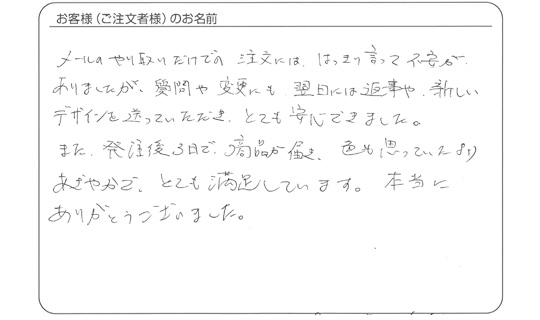 お客様（ご注文者様）のお名前
メールのやり取りだけでの注文には、はっきり言って不安が
ありましたが、質問や変更にも翌日には返事や、新しい
デザインを送っていただき、とても安心できました。
また、発注後3日で、商品が届き、色も思っていたより
あざやかで、とても満足しています。本当に
ありがとうございました。